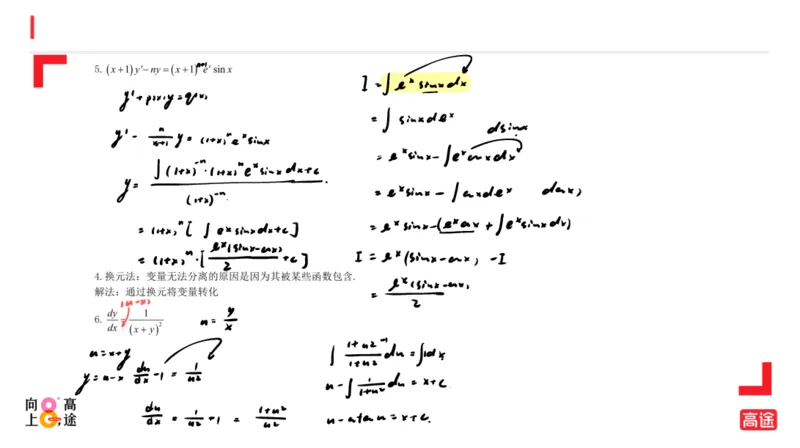 5. (x+1)y′−ny=(x+1)ⁿ⁺¹eˣsin x
y′+p(x)y=q(x)
y′ − n/(x+1) y = (1+x)ⁿeˣsinx
y= (∫(1+x)⁻ⁿ·(1+x)ⁿeˣsinxdx+c) / (1+x)⁻ⁿ
= (1+x)ⁿ[∫eˣsinxdx+c]
= (1+x)ⁿ·[eˣ(sinx−cosx)/2 +c]
I = ∫eˣsinxdx
= ∫sinxdeˣ
dsinx
= eˣsinx−∫eˣcosxdx
= eˣsinx − ∫cosxdeˣ dcosx
= eˣsinx−(eˣcosx + ∫eˣsinxdx)
I = eˣ(sinx−cosx) −I
= eˣ(sinx−cosx)/2
4. 换元法：变量无法分离的原因是因为其被某些函数包含.
解法：通过换元将变量转化
(u−x)
6. dy/dx = 1/(x+y)²
u= y/x
u=x+y
y=u−x du/dx −1 = 1/u²
du/dx = 1/u² +1 = (1+u²)/u²
∫(1+u²−1)/(1+u²) du =∫1dx
u−∫1/(1+u²) du = x+c
u−atanu=x+c.
向高
上途
高途
高途